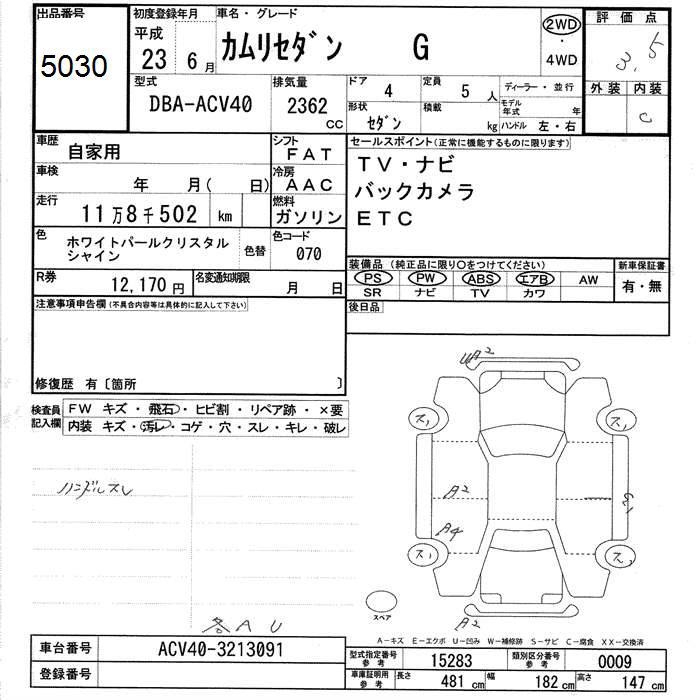 出品番号
5030
初度登録年月
平成
23 6月
車名・グレード
カムリセダン G
2WD
・
4WD
評価点
3.5
外装 内装
C
型式
DBA-ACV40
排気量
2362
CC
ドア
4
定員
5 人
ディーラー・並行
形状
セダン
積載
kg
モデル年式 年
ハンドル 左・右
車歴
自家用
シフト
FAT
車検
年 月( 日)
冷房
AAC
走行
11万8千502 km
燃料
ガソリン
色
ホワイトパールクリスタル
シャイン
色替
色コード
070
R券
12,170円
名変通知期限
月 日
セールスポイント(正常に機能するものに限ります)
TV・ナビ
バックカメラ
ETC
装備品 (純正品に限り〇をつけてください)
新車保証書
PS PW ABS エアB AW
SR ナビ TV カワ
有・無
後日品
注意事項申告欄(不具合内容等は具体的に記入して下さい)
修復歴 有〔箇所 〕
検査員
記入欄
FW キズ・飛石・ヒビ割・リペア跡・×要
内装 キズ・汚レ・コゲ・穴・スレ・キレ・破レ
ハンドルスレ
各AU
A2
ス
ス
A2
A4
ス
ス
A2
スペア
A-キズ E-エクボ U-凹み W-補修跡 S-サビ C-腐食 XX-交換済
車台番号
ACV40-3213091
登録番号
型式指定番号
参考
15283
類別区分番号
参考
0009
車庫証明用
参考
長さ
481 cm
幅
182 cm
高さ
147 cm